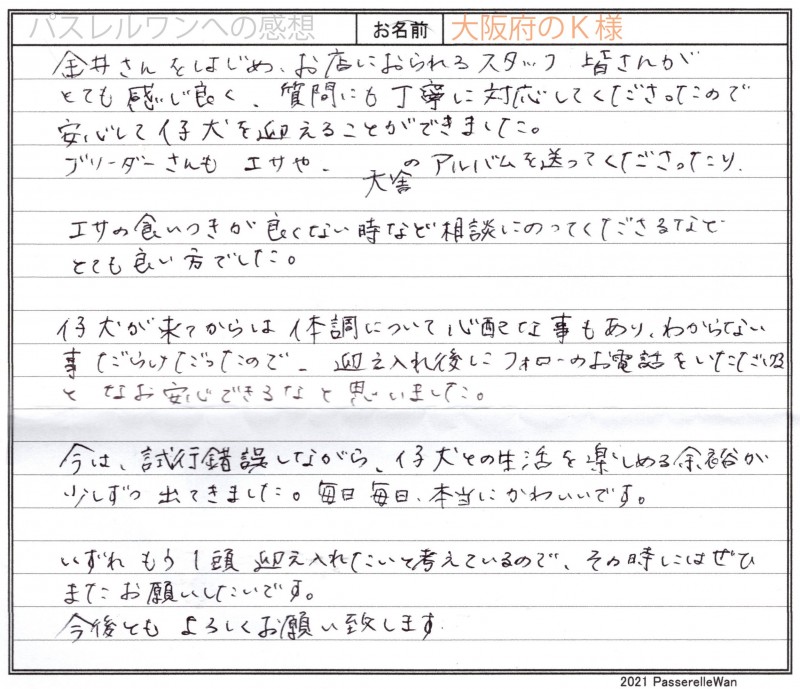 パスレルワンへの感想 お名前 大阪府のK様
金井さんをはじめ、お店におられるスタッフ 皆さんが
とても感じ良く、質問にも丁寧に対応してくださったので
安心して仔犬を迎えることができました。
ブリーダーさんも エサや、犬舎のアルバムを送ってくださったり、
エサの食いつきが良くない時など相談にのってくださるなど
とても良い方でした。
仔犬が来てからは体調について心配な事もあり、わからない
事だらけだったので、迎え入れ後にフォローのお電話をいただける
となお安心できるなと思いました。
今は、試行錯誤しながら、仔犬との生活を楽しめる余裕が
少しずつ出てきました。毎日毎日、本当にかわいいです。
いずれもう1頭 迎え入れたいと考えているので、その時にはぜひ
またお願いしたいです。
今後とも よろしくお願い致します
2021 PasserelleWan